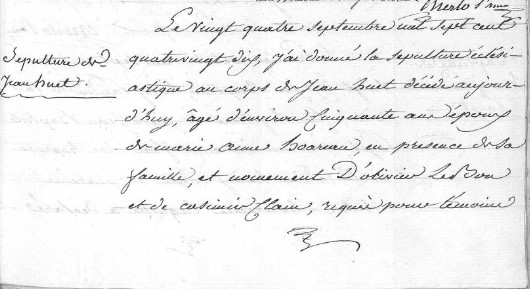 Le vingt quatre septembre mil sept cent
Sepulture de
Jean huet.
quatrevingt dix, j'ai donné la sepulture éclési-
astique au corps de Jean huet décédé aujour-
d'huy, âgé d'environ Cinquante ans époux
de marie anne hoareau, en presence de sa
famille, et nomement D'olivier
et de casimir Clain, requis pour témoins